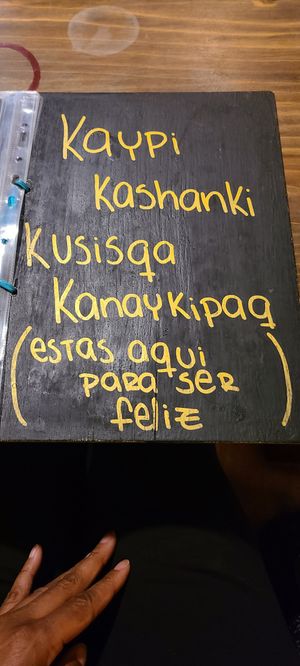 Kaypi
Kashanki
Kusisqa
Kanaykipaq
(estas aqui
para ser
feliz)